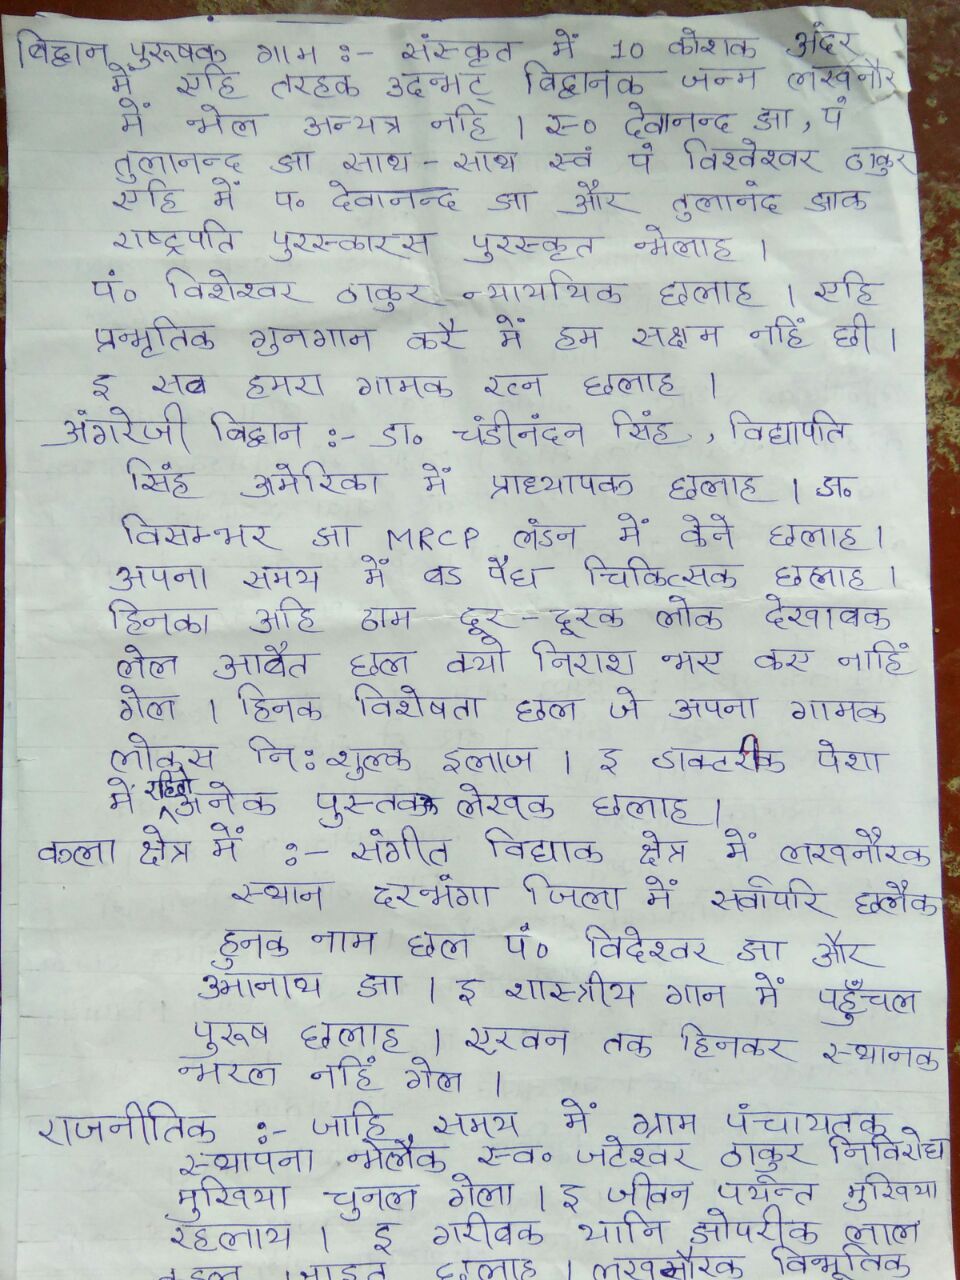 विद्वान पुरूषक गाम :- संस्कृत में 10 कोशक अंदर
में एहि तरहक उदभट् विद्वानक जन्म लखनौर
में भेल अन्यत्र नहि । स्व० देवानन्द झा, पं
तुलानन्द झा साथ-साथ स्वं पं विश्वेश्वर ठाकुर
एहि में प. देवानन्द झा और तुलानंद झाक
राष्ट्रपति पुरस्कारस पुरस्कृत भेलाह ।
पं० विशेश्वर ठाकुर न्यायायिक छलाह । एहि
प्रभृतिक गुनगान करै में हम सक्षम नहिं छी ।
इ सब हमरा गामक रत्न छलाह ।
अंगरेजी विद्वान :- डा. चंडीनंदन सिंह, विद्यापति
सिंह अमेरिका में प्राध्यापक छलाह । डा.
विसम्भर झा MRCP लंडन में केने छलाह ।
अपना समय में बड पैघ चिकित्सक छलाह ।
हिनका अहि ठाम दूर-दूरक लोक देखाबक
लेल आबैत छल क्यो निराश भए कए नाहिं
गेल । हिनक विशेषता छल जे अपना गामक
लोकस निःशुल्क इलाज । इ डाक्टरीक पेशा
में रहितो अनेक पुस्तकक लेखक छलाह ।
कला क्षेत्र में :- संगीत विद्याक क्षेत्र में लखनौरक
स्थान दरभंगा जिला में सर्वोपरि छलैक
हुनक नाम छल पं० विदेश्वर झा और
उमानाथ झा । इ शास्त्रीय गान में पहुँचल
पुरूष छलाह । एखन तक हिनकर स्थानक
भरल नहिं गेल ।
राजनीतिक :- जाहि समय में ग्राम पंचायतक
स्थापना भेलैक स्व. जटेश्वर ठाकुर निविरोध
मुखिया चुनल गेला । इ जीवन पर्यन्त मुखिया
रहलाय । इ गरीबक यानि झोपरीक लाल
छलाह । लखनौरक विभूतिक